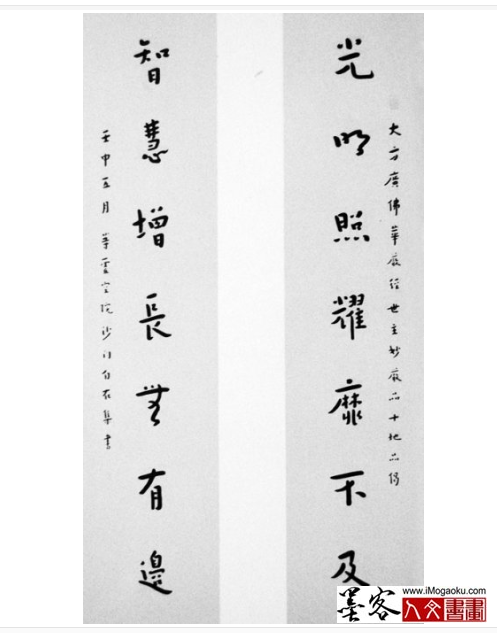 大方廣佛華嚴經世主妙嚴品十地品偈
光明照耀靡不及
智慧增長無有邊
壬申五月 華雲空院沙門自在集書
www.iMogaoku.com
墨客 人文書畫